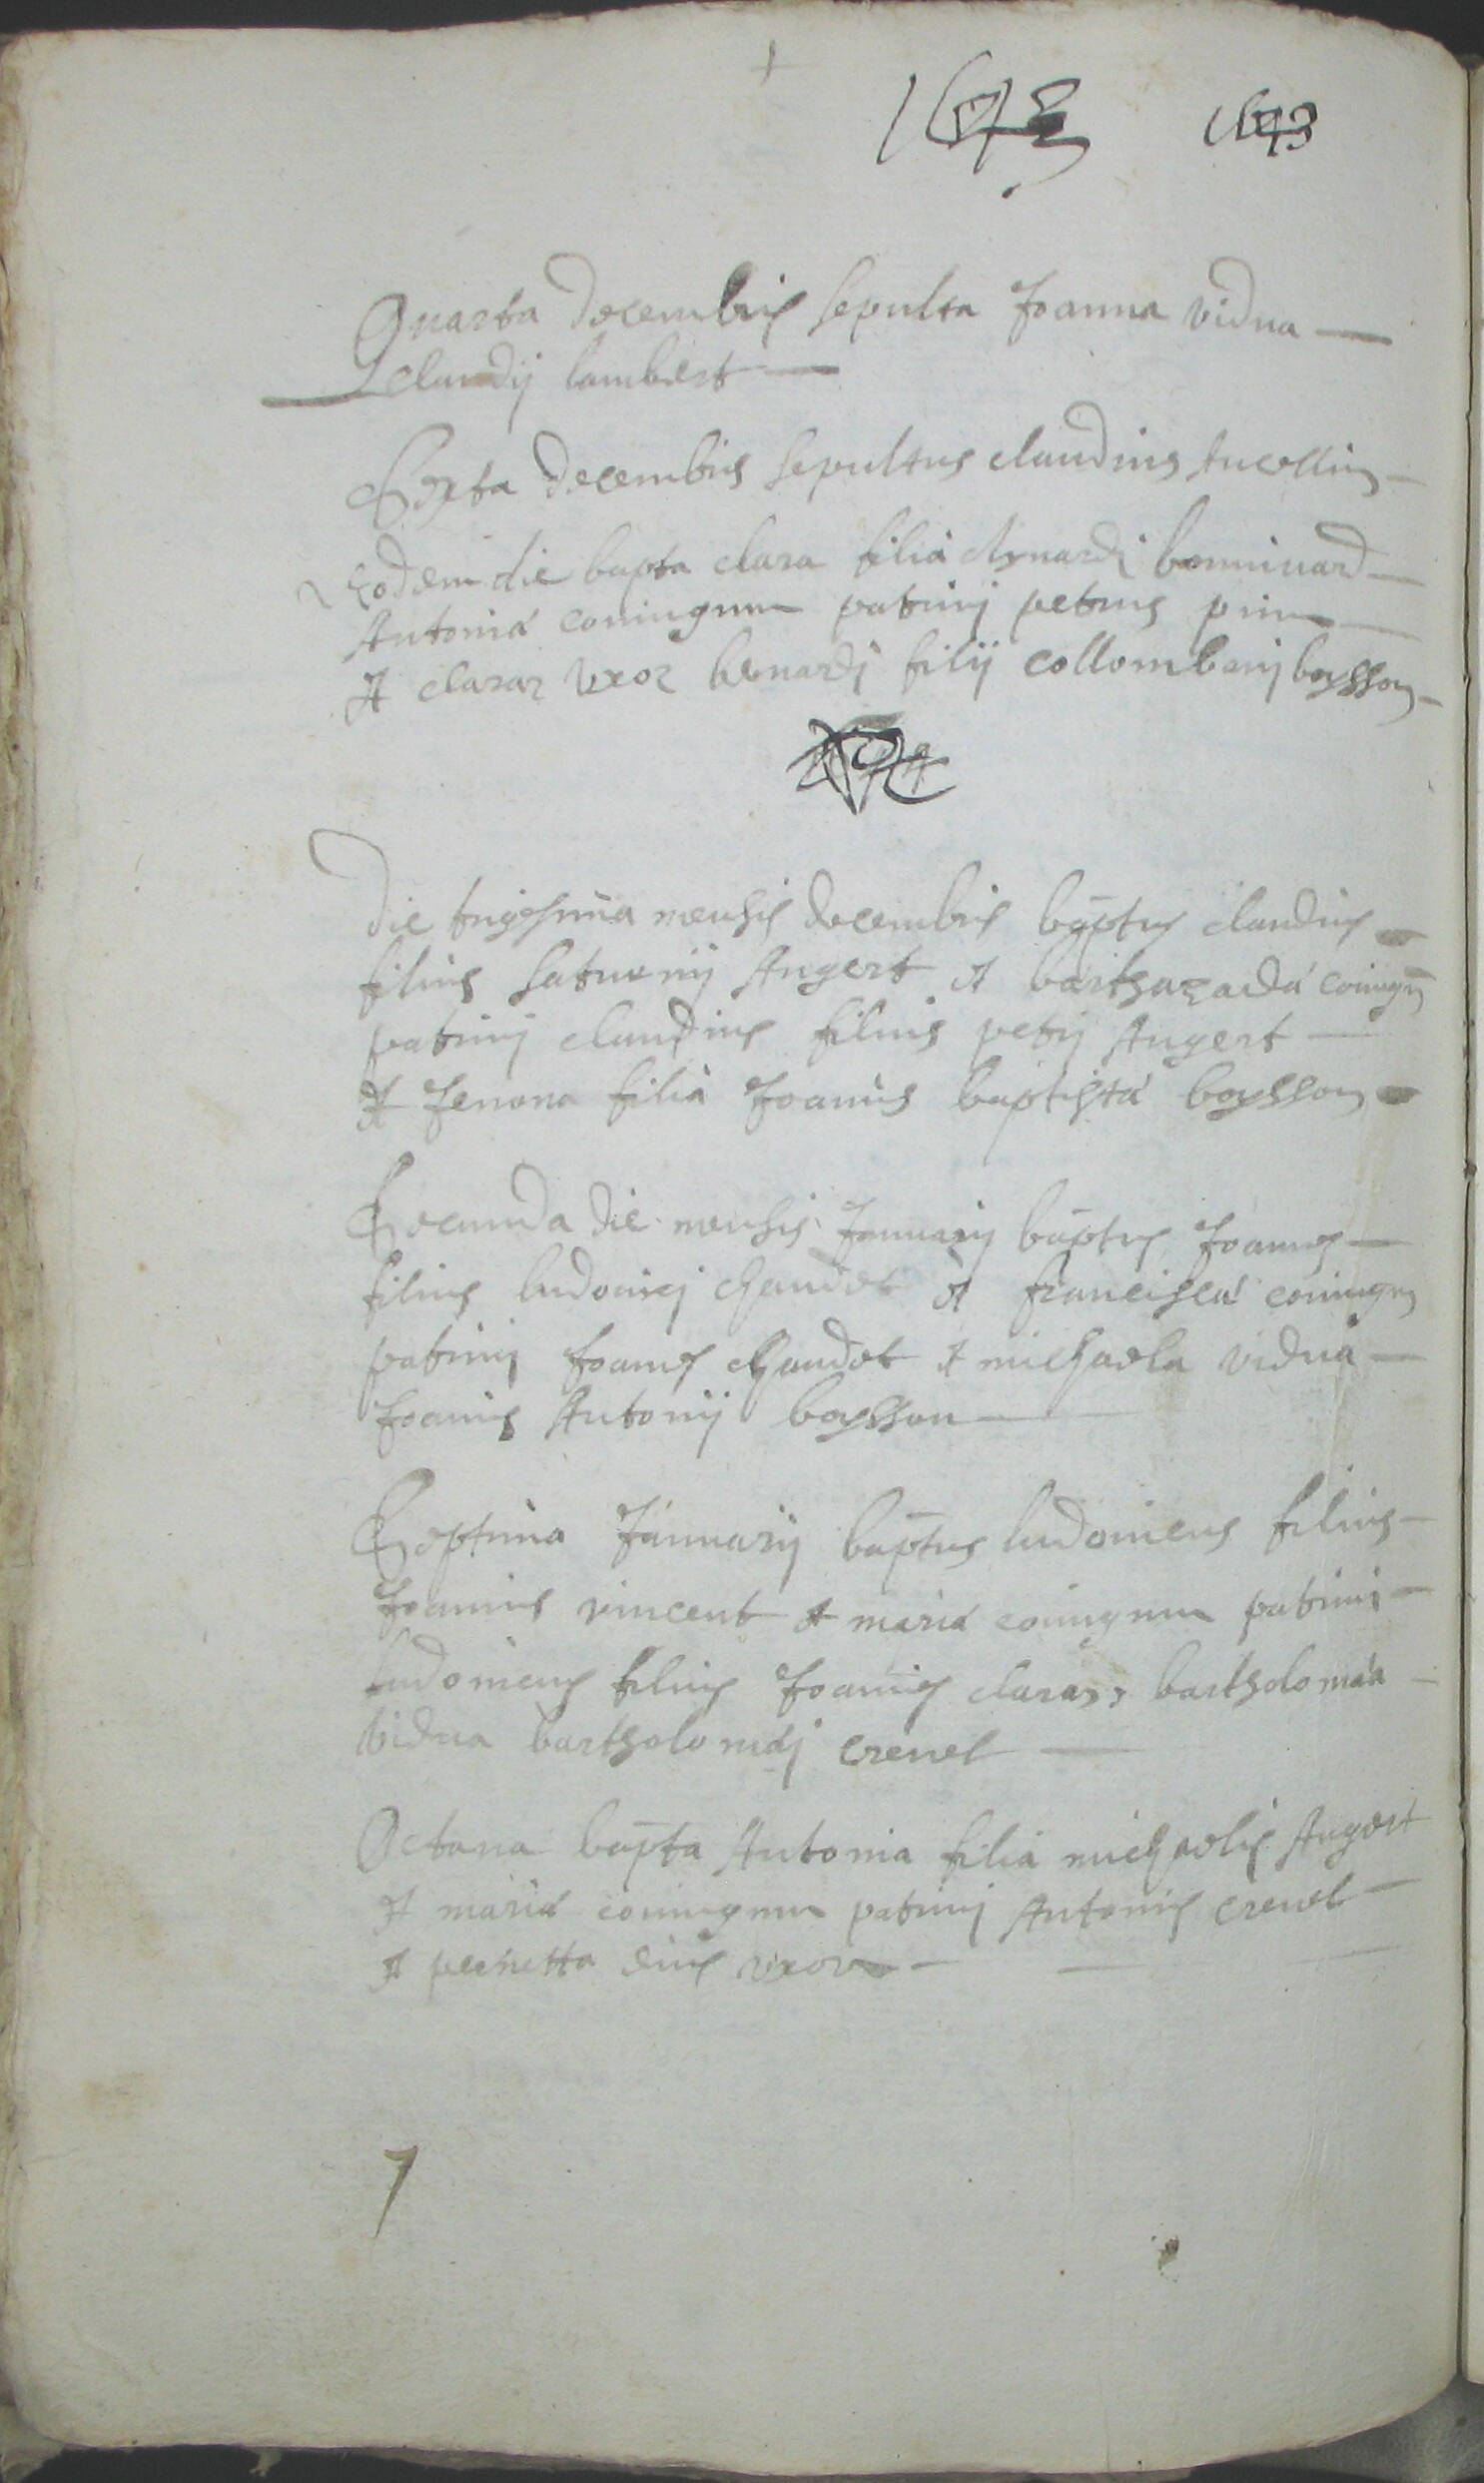 1643
Quarta decembris sepulta Joanna vidua
claudij lambert
Sexta decembris sepultus claudius
Eodem die bapta clara filia Aymardi bonniuard
Antonia coniugum patrinj petrus prim
et clara uxor bernardj filij collombanj boysson
Die trigesima mensis decembris baptus claudius
filius saturnij Augert et coniugu
patrinj claudius filius petrj Augert
et Jenona filia Joannis baptista boysson
Secunda die mensis Januarij baptus Joannes
filius ludouicj chaudet et francisca coniugu
patrinj Joannes chaudet et michaela vidua
Joannis Antonij boysson
Septima Januarij baptus ludouicus filius
Joannis vincent et maria coniugum patrinj
ludouicus filius Joannis claraz bartholomaa
vidua bartholomaj crenel
Octaua bapta Antonia filia michaelis Augert
et maria coniugum patrinj Antonius crenel
et pernetta eius uxor
7